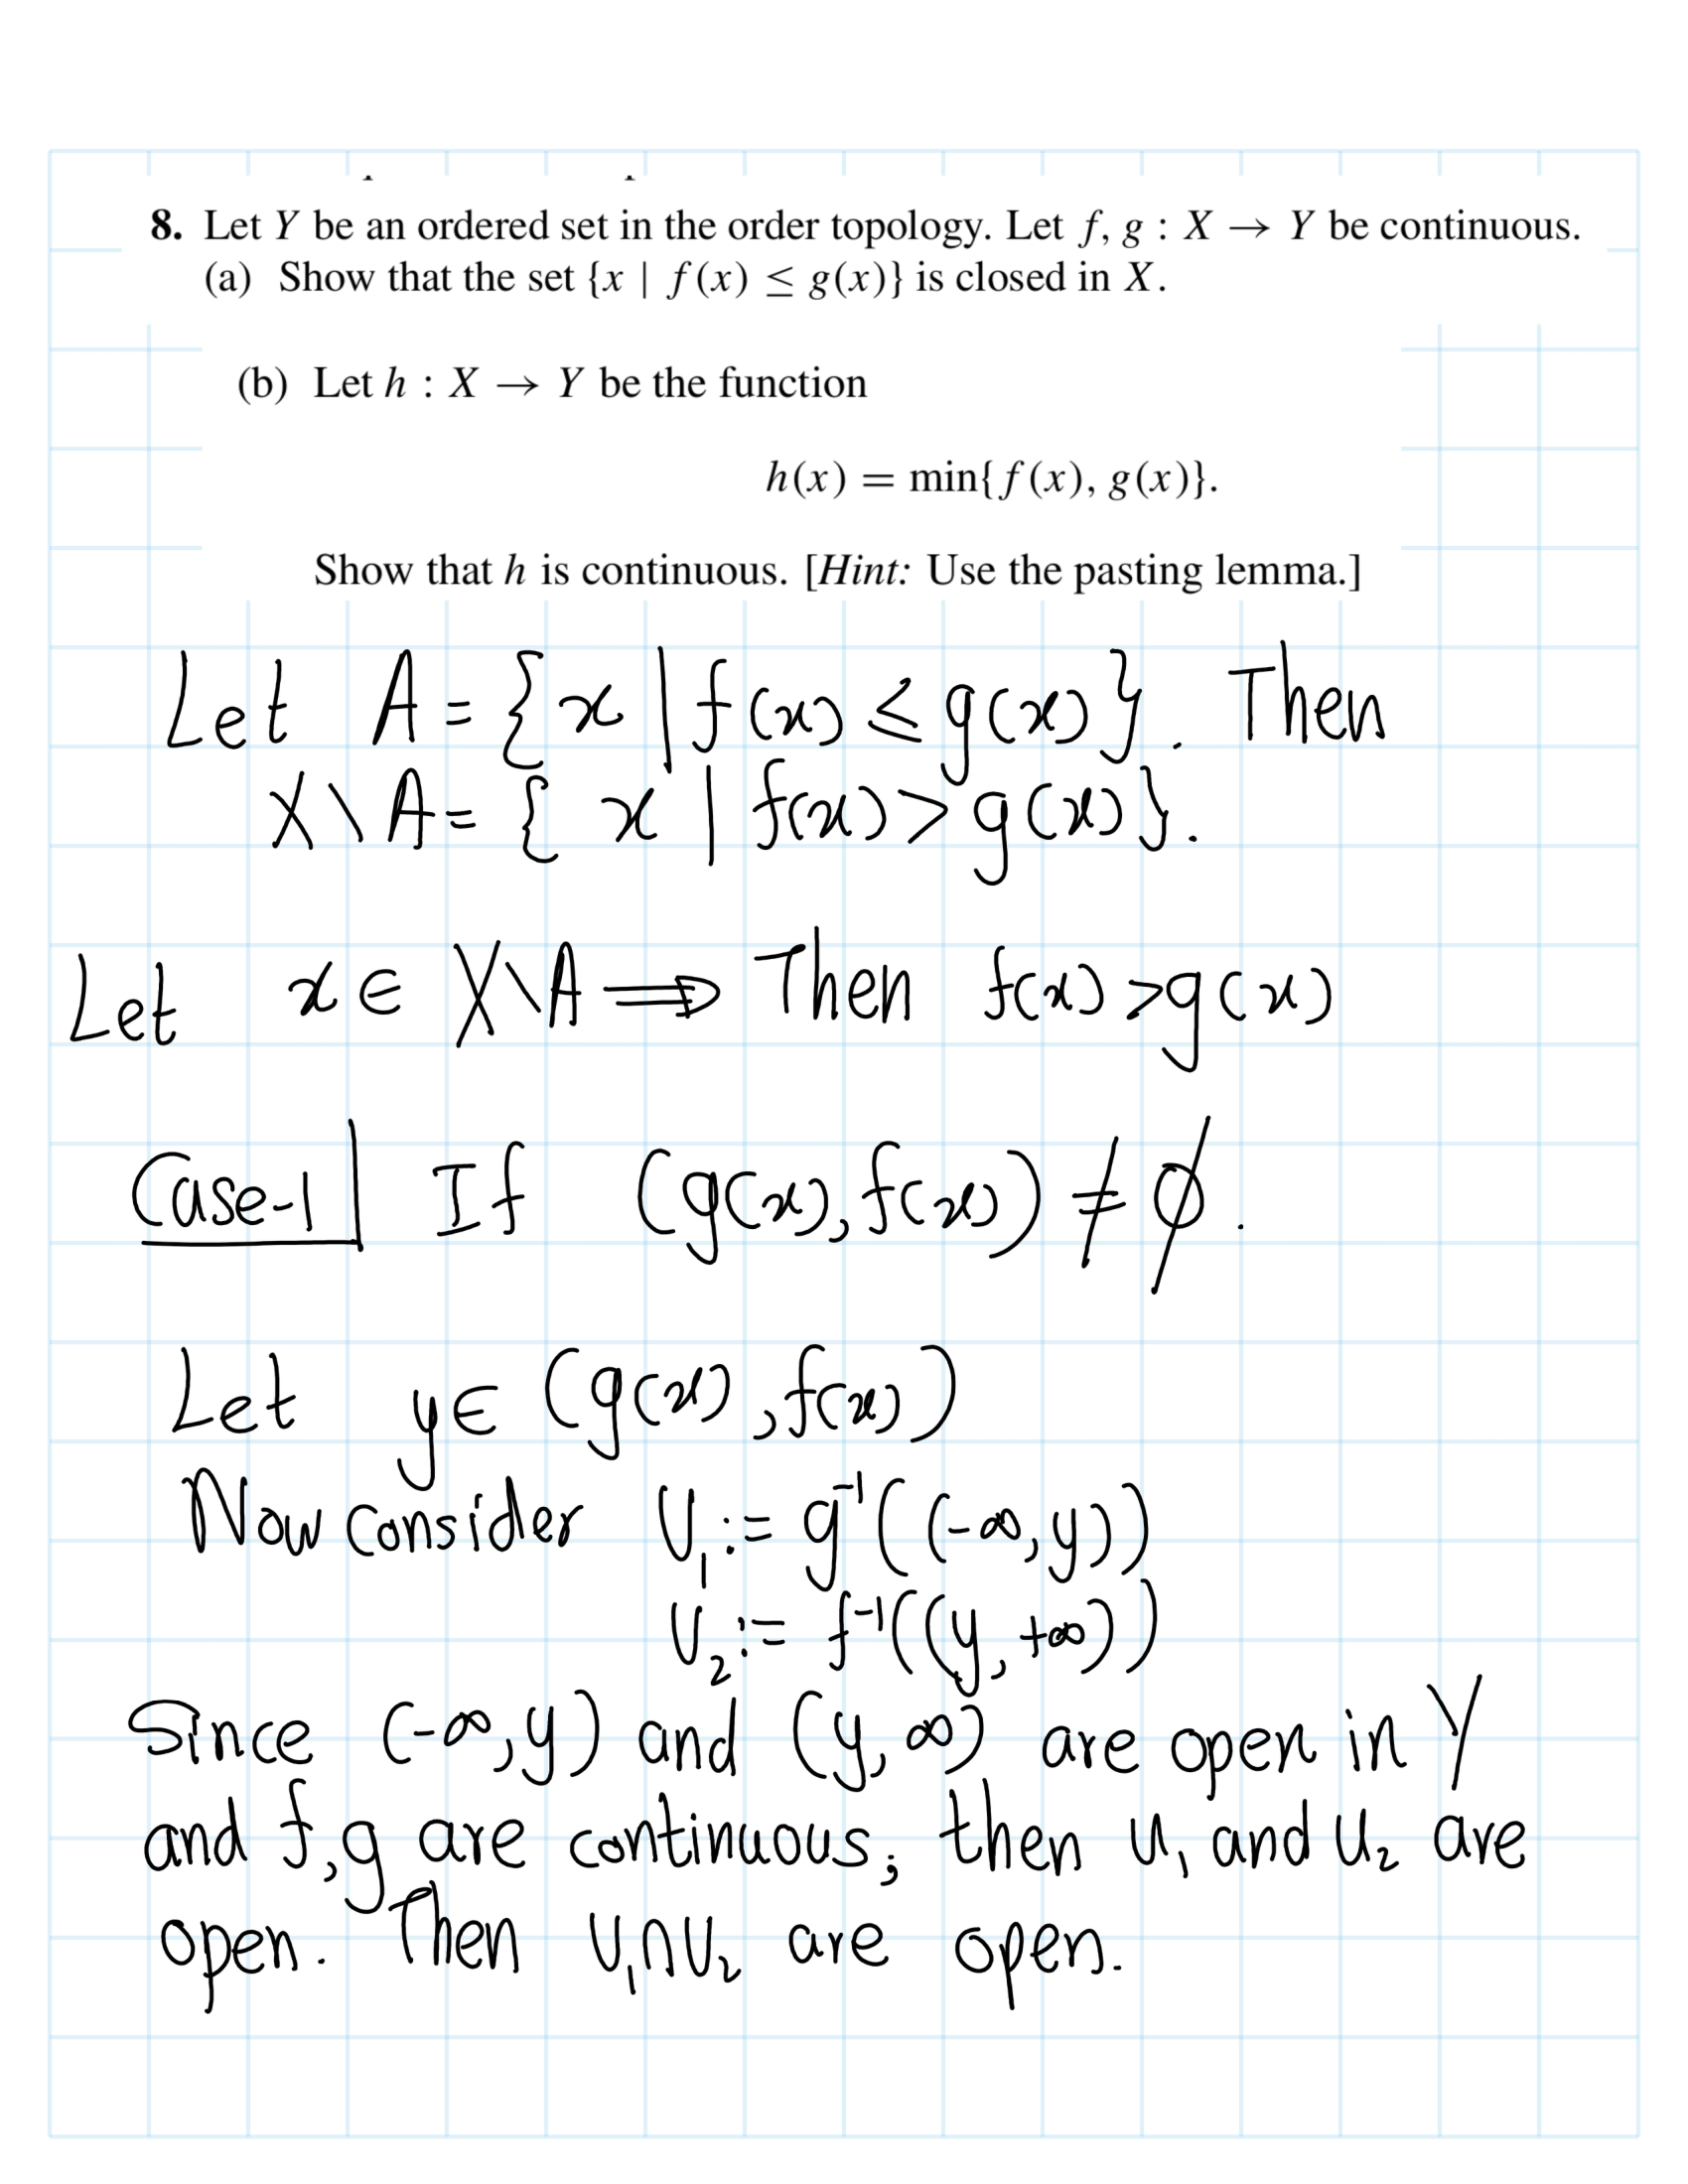 8. Let Y be an ordered set in the order topology. Let f, g : X → Y be continuous.
(a) Show that the set {x | f(x) ≤ g(x)} is closed in X.
(b) Let h : X → Y be the function
h(x) = min{f(x), g(x)}.
Show that h is continuous. [Hint: Use the pasting lemma.]
Let A = { x | f(x) ≤ g(x)}. Then
X\A = { x | f(x) > g(x)}.
Let x ∈ X\A ⟹ Then f(x) > g(x)
Case-1 If (g(x), f(x)) ≠ ∅.
Let y ∈ (g(x), f(x))
Now consider U₁ := g⁻¹((-∞, y))
U₂ := f⁻¹((y, +∞))
Since (-∞, y) and (y, ∞) are open in Y
and f, g are continuous; then U₁ and U₂ are
open. Then U₁∩U₂ are open.